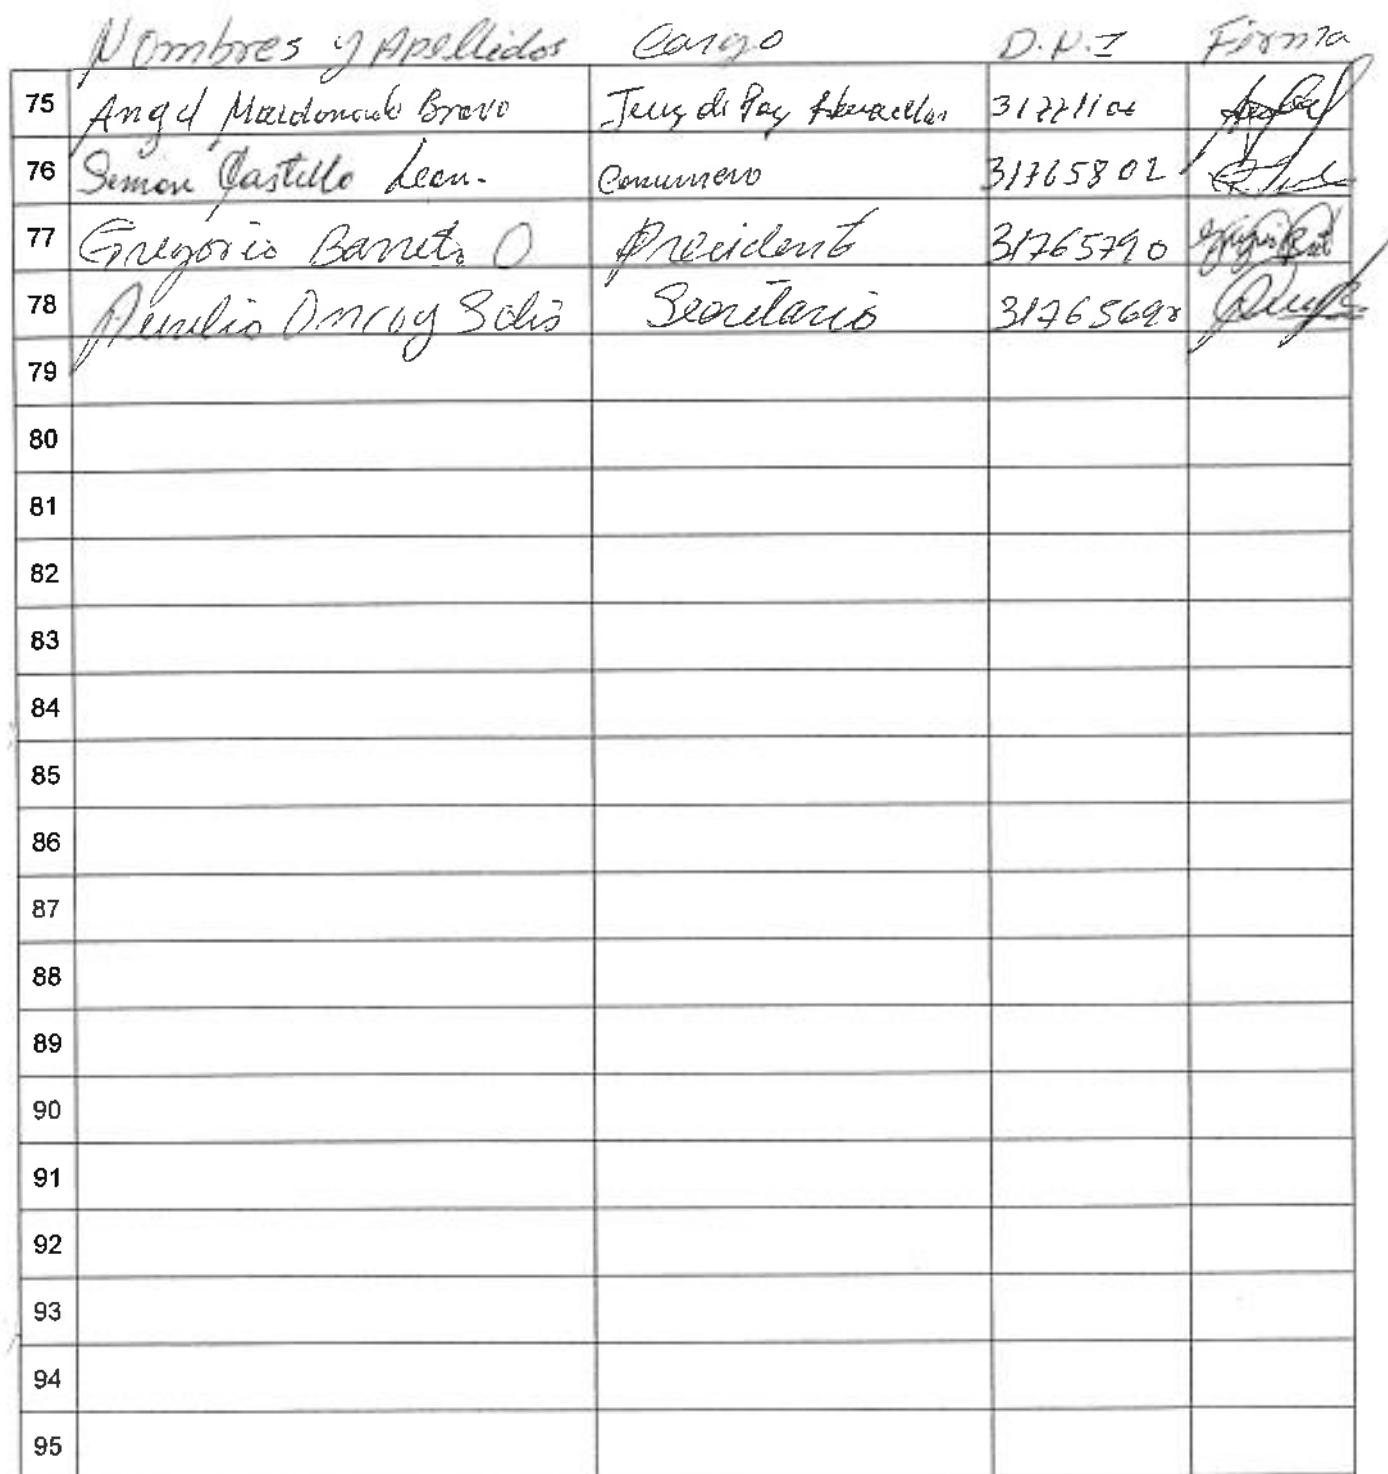 Nombres y Apellidos Cargo D.N.I Firma
75 Angel Maldonado Bravo Juez de Paz
76 Simon Castillo Leon. Comunero 31765802
77 Gregorio Barreto O Presidente 31765790
78 Aurelio Oncoy Solis Secretario
79
80
81
82
83
84
85
86
87
88
89
90
91
92
93
94
95